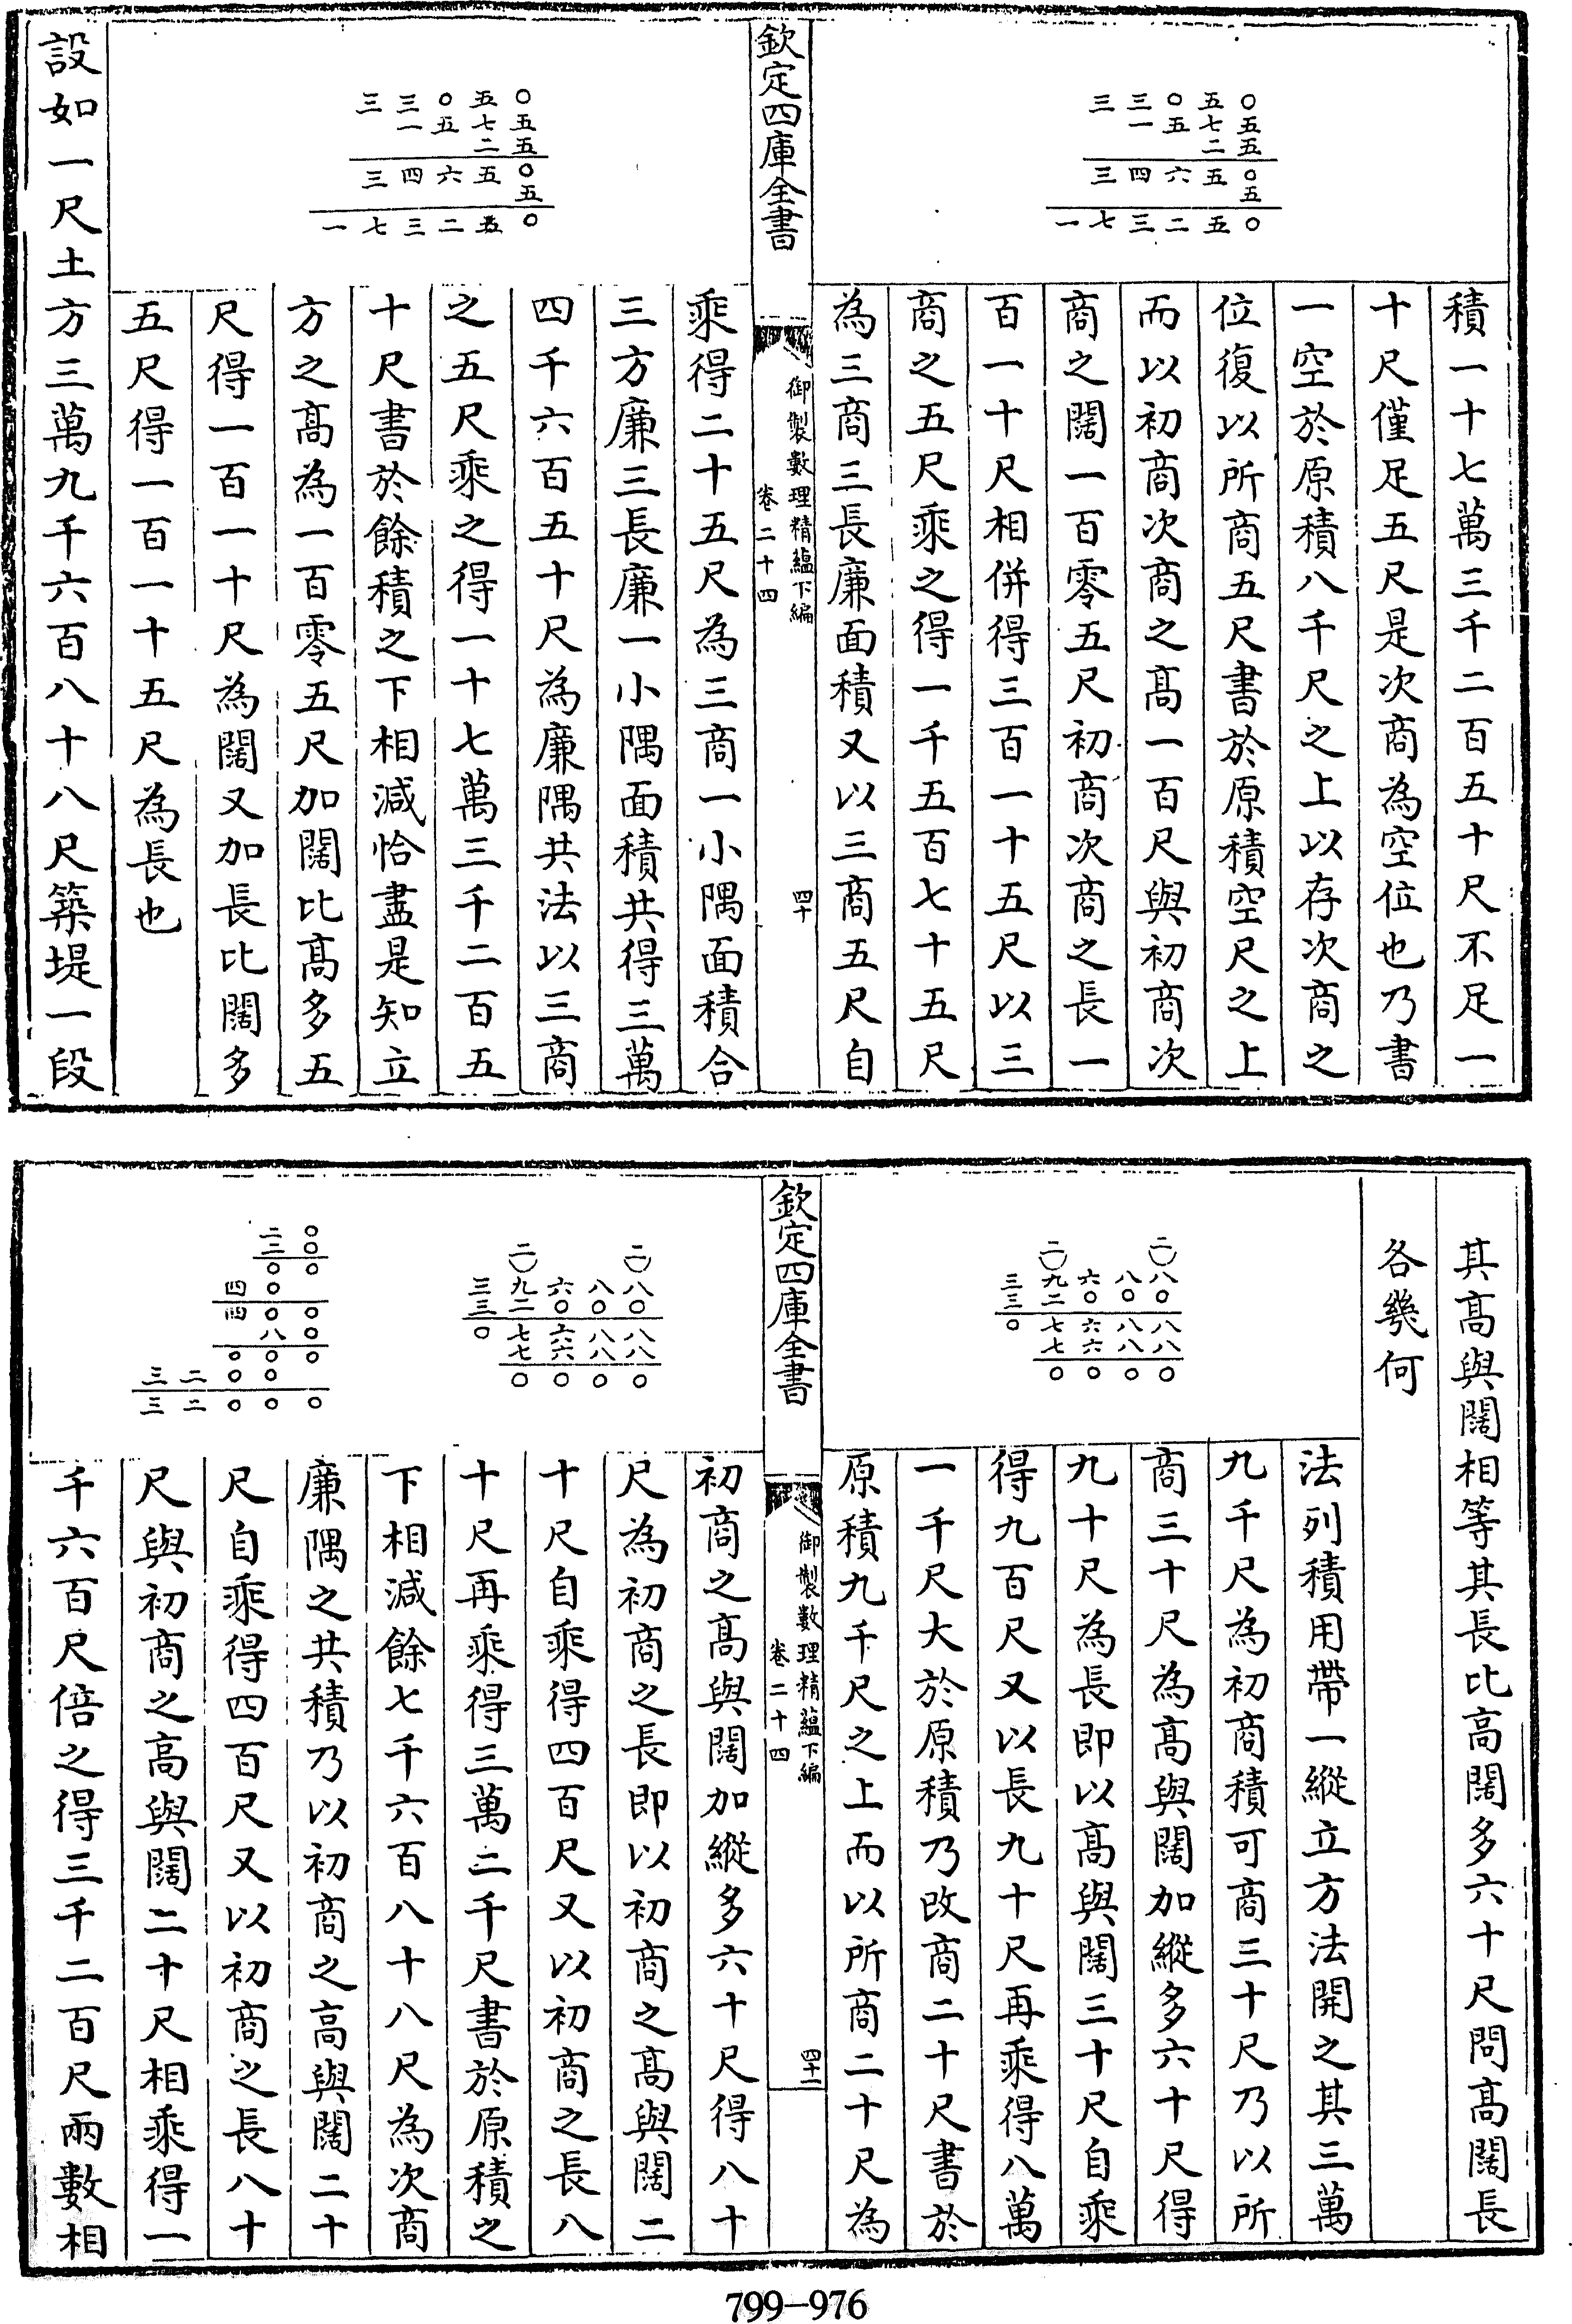 三三〇五〇
一五七五
二五
三四六五〇
五
一七三二五〇
積一十七萬三千二百五十尺不足一
十尺僅足五尺是次商為空位也乃書
一空於原積八千尺之上以存次商之
位復以所商五尺書於原積空尺之上
而以初商次商之髙一百尺與初商次
商之闊一百零五尺初商次商之長一
百一十尺相併得三百一十五尺以三
商之五尺乘之得一千五百七十五尺
為三商三長廉面積又以三商五尺自
欽定四庫全書
御製數理精蘊下編
卷二十四
四十
三三〇五〇
一五七五
二五
三四六五〇
五
一七三二五〇
乘得二十五尺為三商一小隅面積合
三方廉三長廉一小隅面積共得三萬
四千六百五十尺為廉隅共法以三商
之五尺乘之得一十七萬三千二百五
十尺書於餘積之下相減恰盡是知立
方之髙為一百零五尺加闊比髙多五
尺得一百一十尺為闊又加長比闊多
五尺得一百一十五尺為長也
設如一尺土方三萬九千六百八十八尺築堤一段
其髙與闊相等其長比髙闊多六十尺問髙闊長
各幾何
二二
三九六八八
三二〇〇〇
〇七六八八
七六八八
〇〇〇〇
法列積用帶一縱立方法開之其三萬
九千尺為初商積可商三十尺乃以所
商三十尺為髙與闊加縱多六十尺得
九十尺為長即以髙與闊三十尺自乘
得九百尺又以長九十尺再乘得八萬
一千尺大於原積乃改商二十尺書於
原積九千尺之上而以所商二十尺為
欽定四庫全書
御製數理精蘊下編
卷二十四
四十一
二二
三九六八八
三二〇〇〇
〇七六八八
七六八八
〇〇〇〇
二〇
二〇
〇〇
四〇
四〇〇
八〇
〇〇〇
三二〇〇
三二〇〇〇
初商之髙與闊加縱多六十尺得八十
尺為初商之長即以初商之髙與闊二
十尺自乘得四百尺又以初商之長八
十尺再乘得三萬二千尺書於原積之
下相減餘七千六百八十八尺為次商
廉隅之共積乃以初商之髙與闊二十
尺自乘得四百尺又以初商之長八十
尺與初商之髙與闊二十尺相乘得一
千六百尺倍之得三千二百尺兩數相
799-976